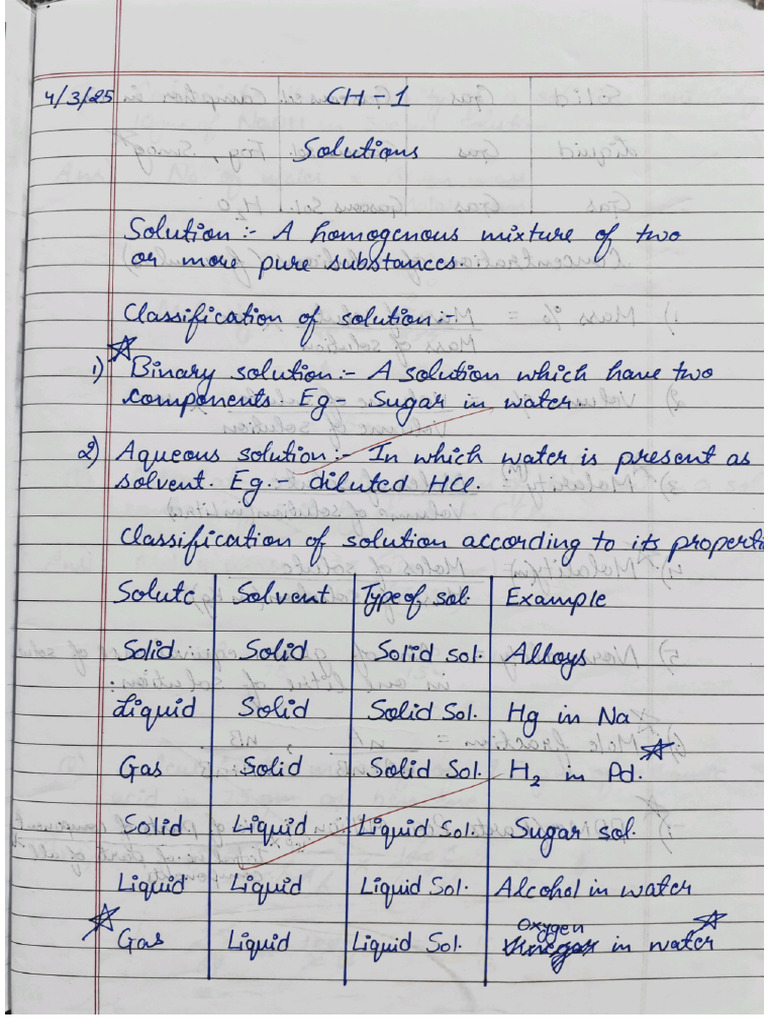 4/3/25 CH - 1
Solutions
Solution :- A homogenous mixture of two
or more pure substances.
Classification of solution :-
1) Binary solution :- A solution which have two
components. Eg - Sugar in water.
2) Aqueous solution :- In which water is present as
solvent. Eg. - diluted HCl.
Classification of solution according to its properti
Solute Solvent Type of sol. Example
Solid Solid Solid sol. Alloys
Liquid Solid Solid Sol. Hg in Na
Gas Solid Solid Sol. H2 in Pd.
Solid Liquid Liquid Sol. Sugar sol.
Liquid Liquid Liquid Sol. Alcohol in water
Gas Liquid Liquid Sol. Oxygen in water